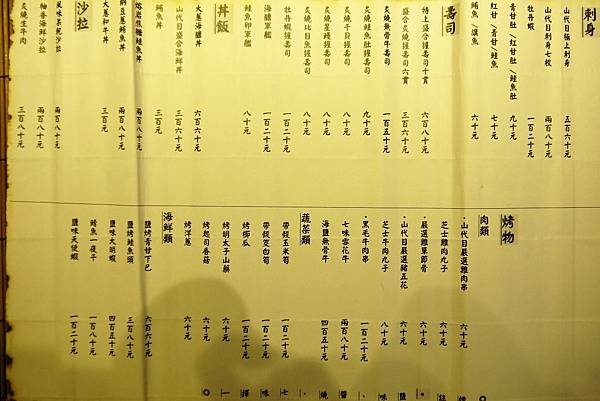 刺身
山代日極上刺身 五百六十元
山代日刺身七枚 兩百八十元
牡丹蝦 一百二十元
青甘肚/紅甘肚/鮭魚肚 九十元
紅甘/青甘/鮭魚 七十元
鮪魚/旗魚 六十元
壽司
特上盛合握壽司十貫 六百八十元
盛合炙燒握壽司六貫 三百六十元
炙燒無骨牛壽司 一百五十元
炙燒鮭魚肚握壽司 九十元
炙燒干貝握壽司 八十元
炙燒星鰻握壽司 八十元
炙燒比目魚握壽司 八十元
牡丹蝦握壽司 一百二十元
海膽軍艦 一百二十元
鮭魚卵軍艦 八十元
丼飯
大蔥海膽丼 六百六十元
山代日盛合海鮮丼 三百六十元
鮪魚丼 三百元
熔岩焦糖鮭魚丼 兩百八十元
納豆蔥鮪魚丼 兩百八十元
大蔥和牛丼 三百元
沙拉
風味蕎麥沙拉 兩百八十元
柚香海鮮沙拉 兩百八十元
炙燒生牛肉 三百八十元
烤物
肉類
·山代日嚴選雞肉串 六十元
芝士雞肉丸子 六十元
·嚴選雞軍節骨 六十元
·山代日嚴選豬五花 六十元
芝士牛肉丸子 八十元
·黑毛牛肉串 一百二十元
七味雪花牛 兩百八十元
海鹽無骨牛 四百五十元
蔬菜類
帶殼玉米筍 一百二十元
帶殼茭白筍 一百二十元
烤櫛瓜 一百二十元
烤明太子山藥 六十元
烤起司香菇 六十元
烤洋蔥 六十元
海鮮類
鹽烤青甘下巴 六百六十元
鹽烤鮭魚頭 三百八十元
鹽味大明蝦 四百五十元
鯖魚一夜干 一百八十元
鹽味天使蝦 一百二十元